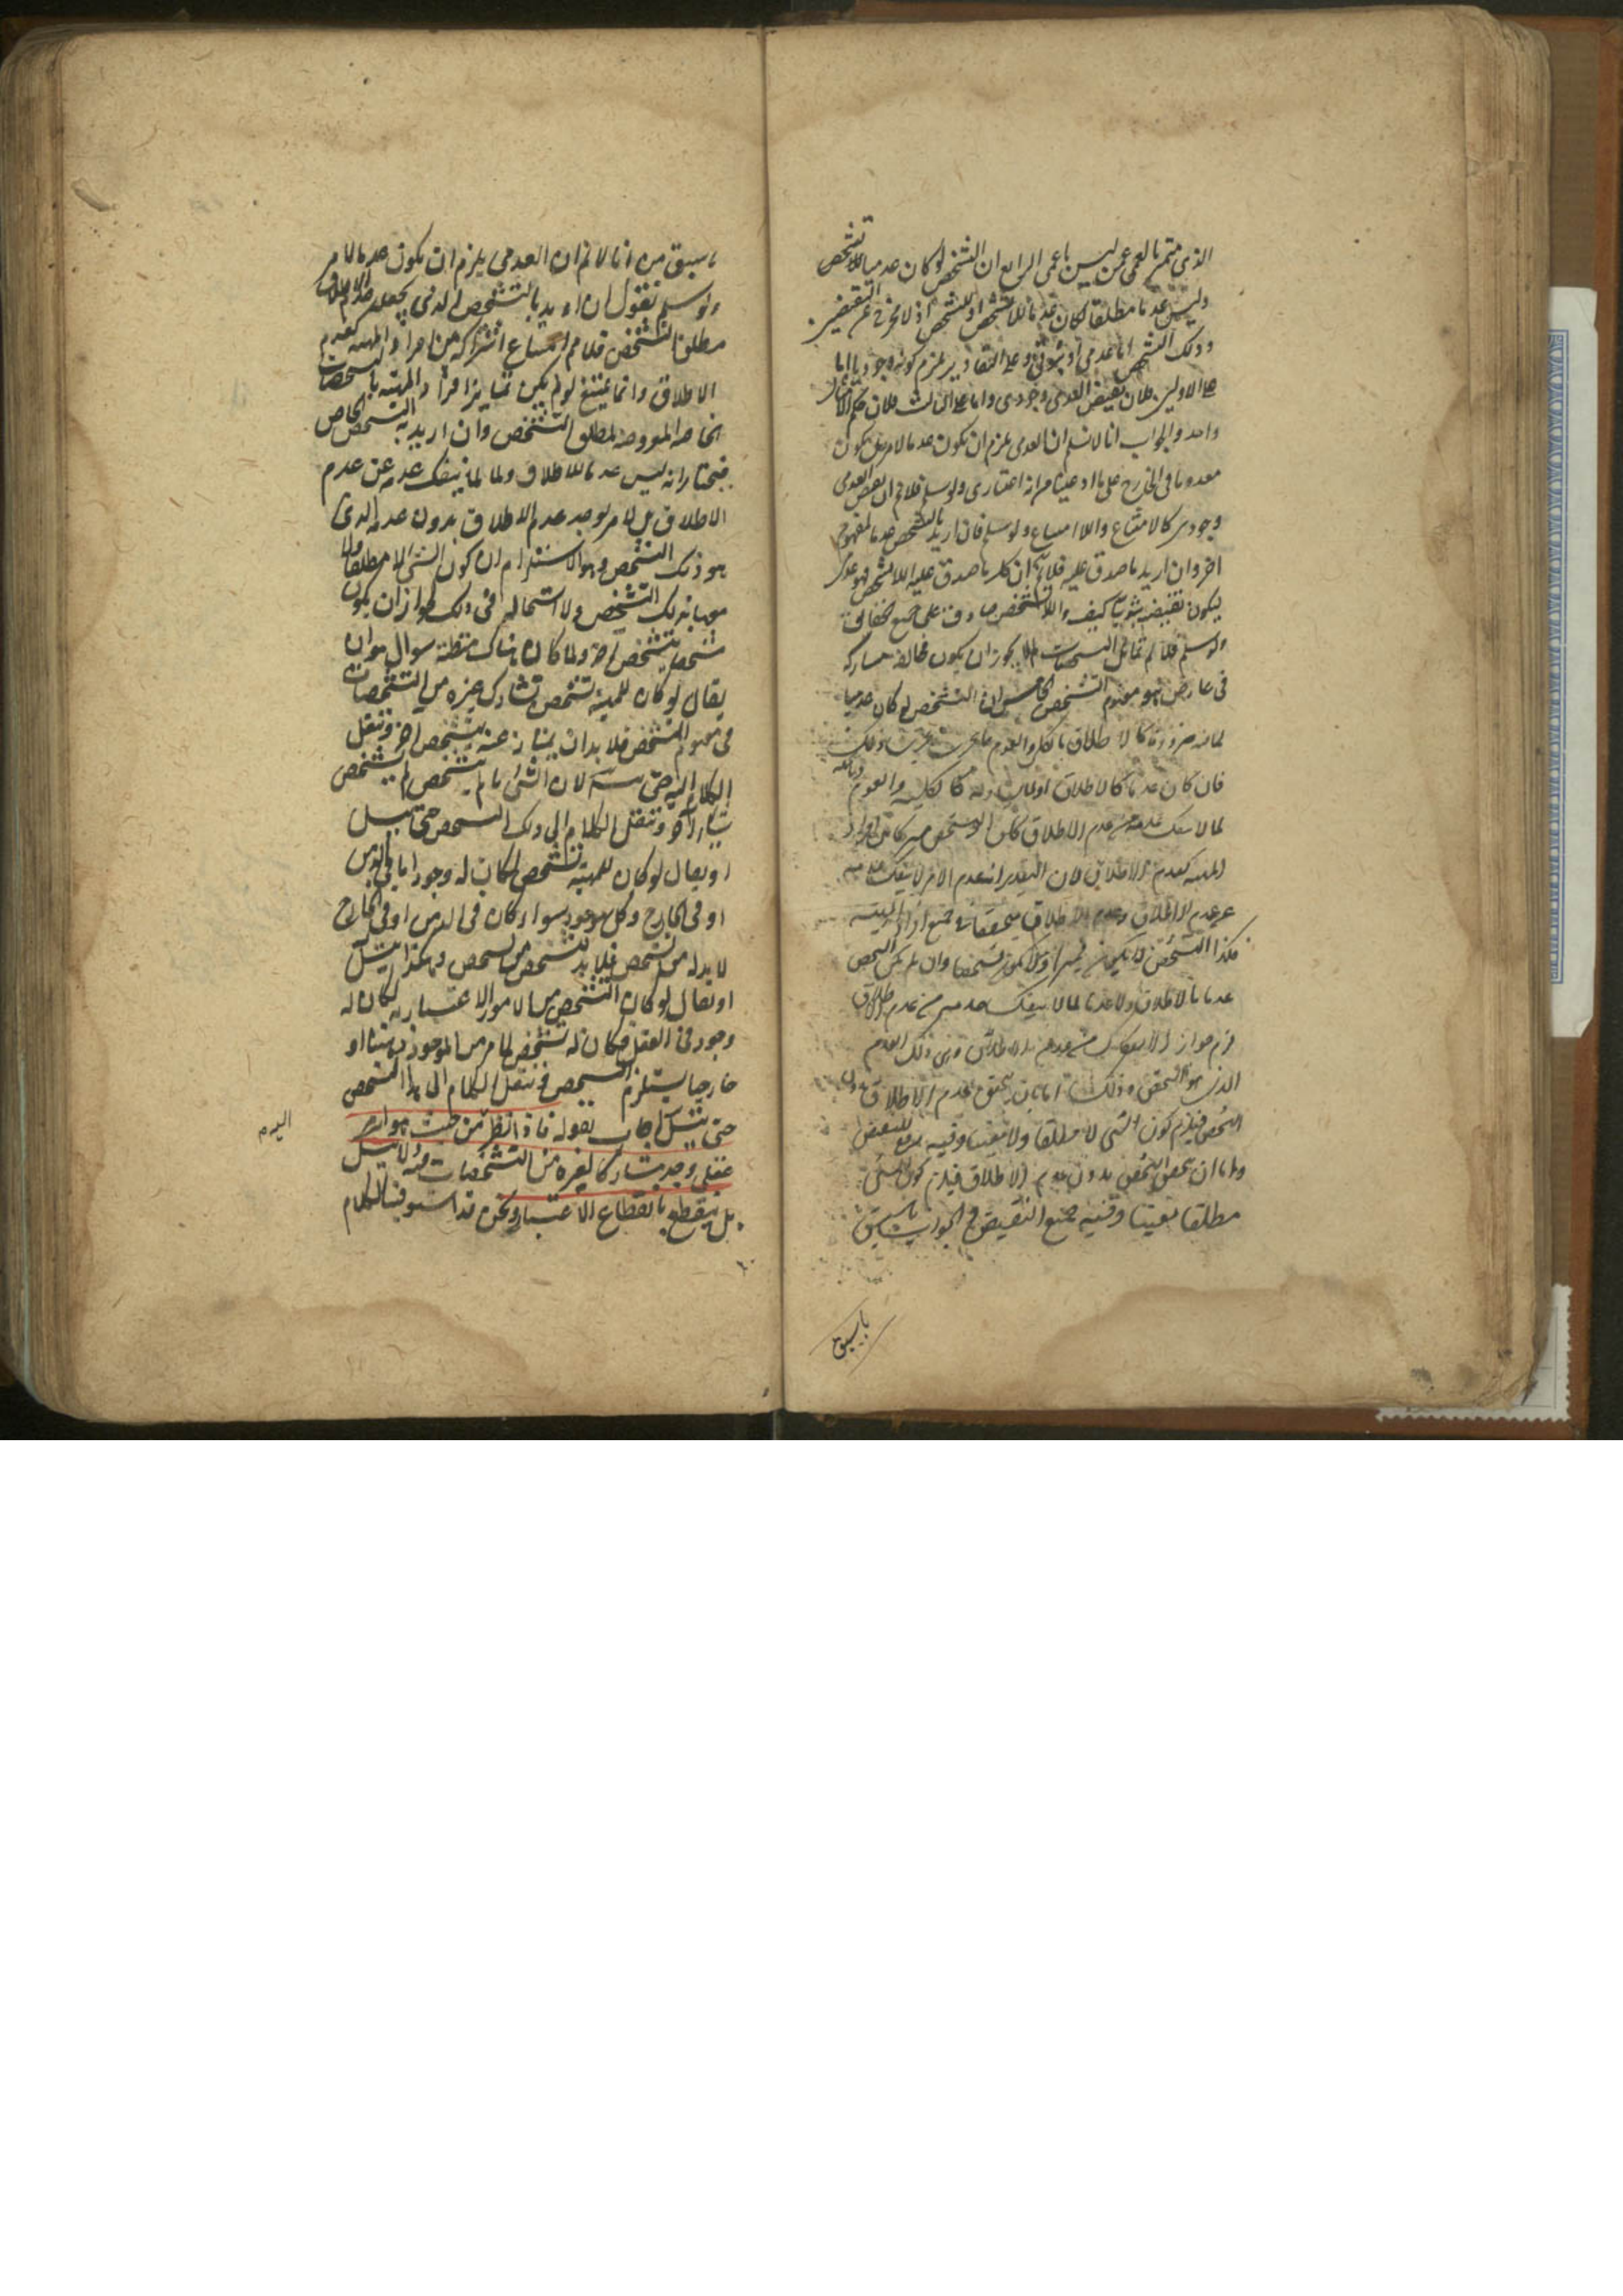 الذى يتميز بالعمى عمن ليس باعمى الرابع ان التشخص لو كان عدميا للاتشخص
وليس عدما مطلقا لكان عدما للاتشخص او لتشخص اذ لا مخرج عن النقيضين
وذلك التشخص اما عدمى او ثبوتى وعلى التقادير يلزم كونه وجوديا اما
على الاولين فلان نقيض العدمى وجودى واما على الثالث فلان حكم الامثال
واحد والجواب انا لا نسلم ان العدمى يلزم ان يكون عدما لامر بل يكون
معدوما فى الخارج على ما ادعيتم انه اعتبارى ولو سلم فلا نم ان نقيض العدمى
وجودى كالامتناع واللا امتناع ولو سلم فان اريد بالتشخص عدما لمفهوم
اخر وان اريد ما صدق عليه فلا نم ان كل ما صدق عليه اللاتشخص فهو عدمى
ليكون نقيضه ثبوتيا كيف واللاتشخص صادق على جميع الحقائق
ولو سلم فلا نم تماثل التشخصات لم لا يجوز ان يكون متخالفة متشاركة
فى عارض هو مفهوم التشخص الخامس ان التشخص لو كان عدميا
لما نه ضرورة كالاطلاق والكلى والعموم
فان كان عدما كالاطلاق او لما يساويه كالكلية والعموم
لما لا ينفك عدمه عن عدم الاطلاق كان التشخص مشتركا بين افراد
المهية كعدم الاطلاق لان التقدير انه عدم الامر لا ينفك عدمه
عن عدم الاطلاق وعدم الاطلاق متحقق فى جميع افراد المهية
فكذا التشخص فلا يكون مميزا فلا يكون تشخصا وان لم يكن التشخص
عدما للاطلاق ولا عدما لما لا ينفك عدمه عن عدم الاطلاق
لزم جواز الانفكاك بين عدم الاطلاق وبين ذلك العدم
الذى هو التشخص وذلك اما بان يتحقق عدم الاطلاق بدون
التشخص فيلزم كون الشى لا مطلقا ولا معينا وفيه رفع للنقيض
واما ان يتحقق التشخص بدون عدم الاطلاق فيلزم كون الشى
مطلقا معينا وفيه جمع النقيضين والجواب ما سبق
ما سبق
ما سبق من انا لا نم ان العدمى يلزم ان يكون عدما لامر
ولو سلم فنقول ان اريد بالتشخص الذى يجعل عدم الاطلاق
مطلق التشخص فلا نم امتناع اشتراكه بين افراد المهية كعدم
الاطلاق وانما يمتنع لو لم يكن تمايز افراد المهية بالتشخصات
الخاصة المعروضة لمطلق التشخص وان اريد به التشخص الخاص
فنختار انه ليس عدما للاطلاق ولا لما ينفك عدمه عن عدم
الاطلاق بل لامر يوجد عدم الاطلاق بدون عدمه الذى
هو ذلك التشخص وهو الاستلزام ان كون الشى لا مطلقا ولا
معينا بذلك التشخص ولا استحالة فى ذلك لجواز ان يكون
شخصا بتشخص آخر ولما كان هناك مظنة سوال هو ان
يقال لو كان للمهية تشخص تشارك غيره من التشخصات
فى مفهوم التشخص فلا بد ان يمتاز عنه بتشخص آخر وننقل
الكلام اليه حتى يتسلسل لان الشى ما لم يتشخص لم يتشخص
شى آخر وننقل الكلام الى ذلك التشخص حتى يتسلسل
او يقال لو كان للمهية تشخص لكان له وجود اما فى الذهن
او فى الخارج وكل موجود سواء كان فى الذهن او فى الخارج
لا بد له من تشخص فلا بد لتشخص من تشخص وهكذا يتسلسل
او يقال لو كان التشخص من الامور الاعتبارية لكان له
وجود فى العقل فكان له تشخص لما مر من الموجود ذهنيا او
خارجيا يستلزم التشخص فننقل الكلام الى هذا التشخص
حتى يتسلسل اجاب بقوله فاذا نظر من حيث هو امر
عقلى وجد مشاركا لغيره من التشخصات فيه ولا يتسلسل
بل ينقطع بانقطاع الاعتبار ونحن قد استوفينا الكلام